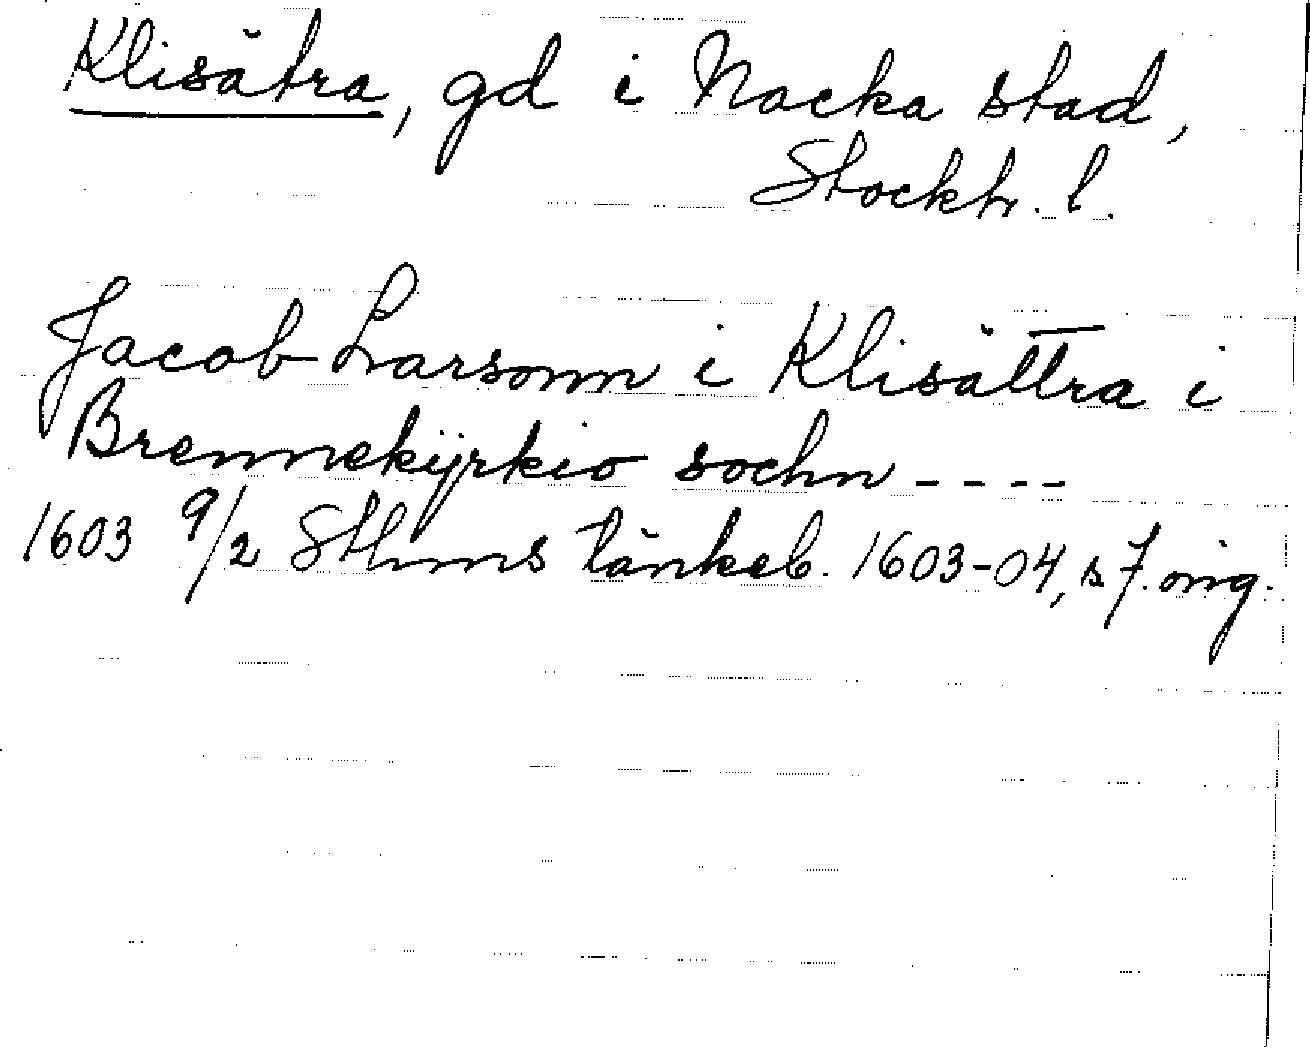 Klisätra, gd i Nacka stad,
Stockh. l.
Jacob Larsonn i Klisättra i
Brennekijrkio sochn ----
1603 9/2 Sthms tänkeb. 1603-04, s 7. orig.